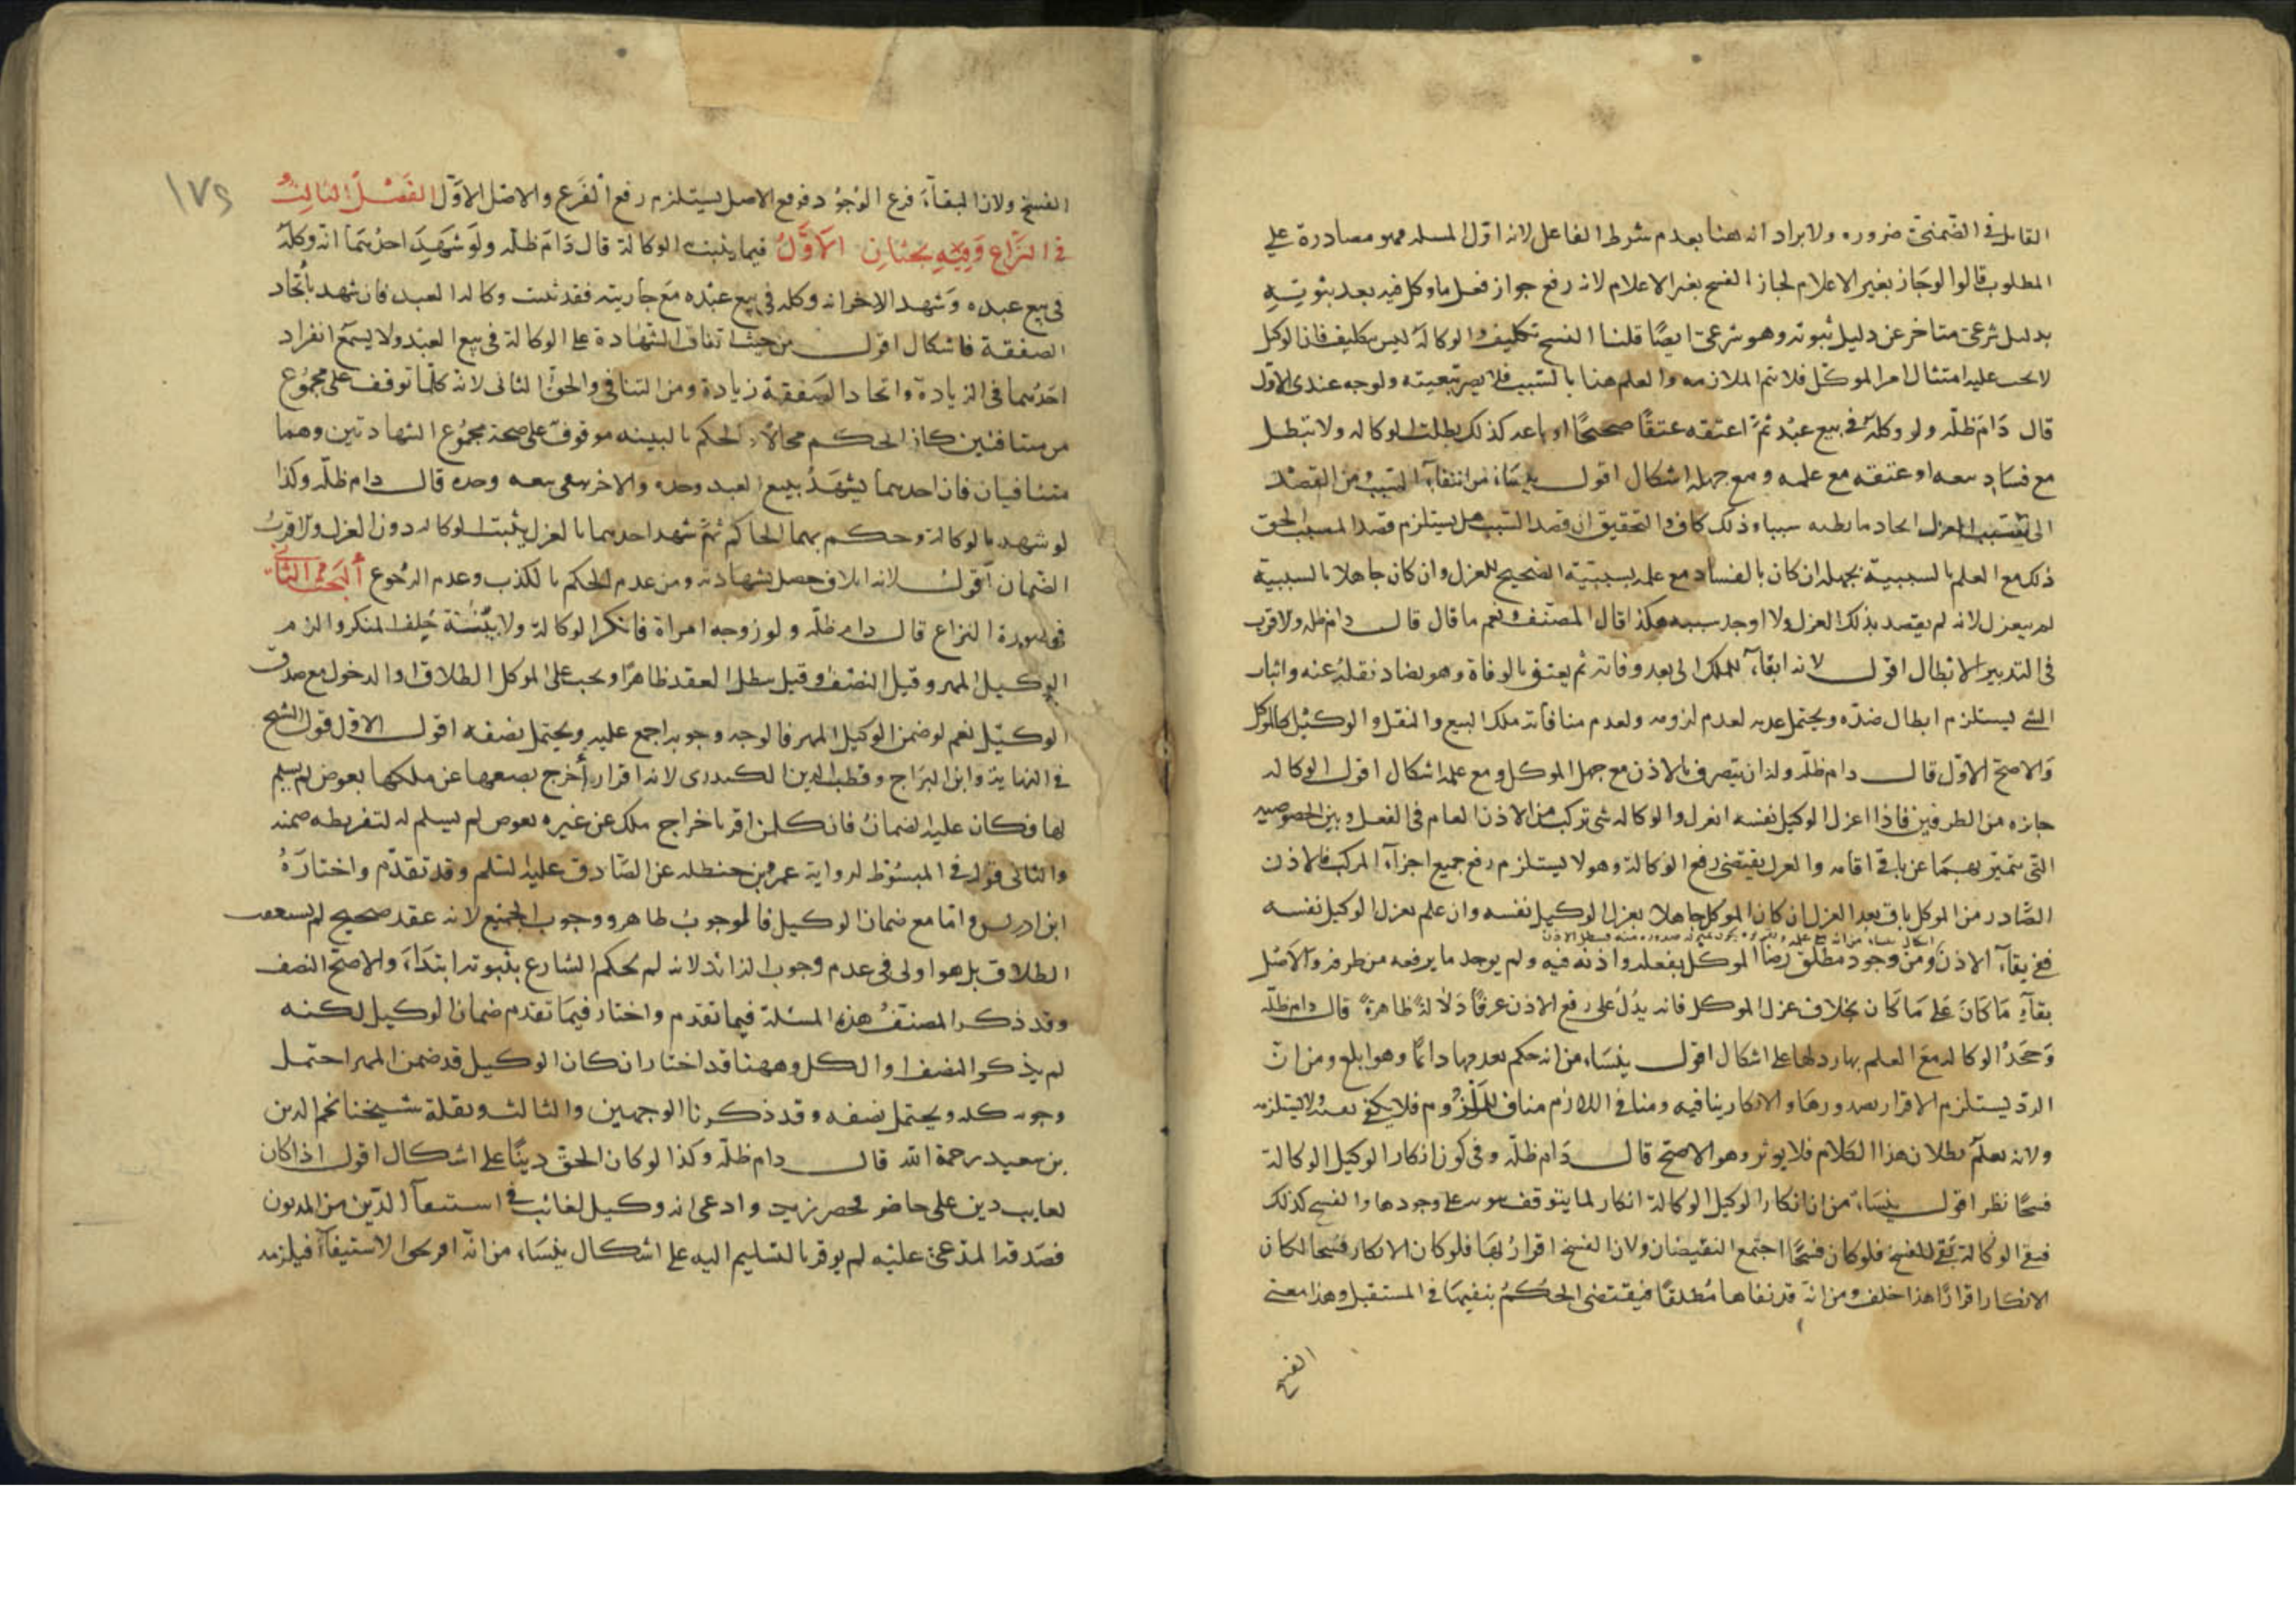 القابل في الضمنى ضروره ولا يراد انه هنا بعدم شرط الفاعل لانه اول المسله فهو مصادرة على
المطلوب قالوا لو جاز بغير الاعلام لجاز الفسخ بغير الاعلام لانه رفع جواز فعل ما وكل فيه بعد ثبوته
بدليل شرعى متاخر عن دليل ثبوته وهو شرعى ايضًا قلنا الفسخ تكليف والوكالة ليس بتكليف فان الوكيل
لا يجب عليه امتثال امر الموكّل فلا تتم الملازمه والعلم هنا بالسبب فلا يصير تبعيته ولوجه عندى الاول
قال دَامَ ظلّه ولو وكله فى بيع عبْد ثمّ اعتقه عتقًا صحيحًا او باعه كذلك بطلت الوكاله ولا تبطل
مع فسَاد بيعه او عتقه مع علمه ومع جهله اشكال اقول ينشاء من انتفاء السبب ومن القصْد
الى العزل ايجاد ما يظنه سببا وذلك كاف والتحقيق ان قصد السبب هل يستلزم قصد المسبب الحق
ذلك مع العلم بالسببية بجهله ان كان بالفساد مع علمه بسببيّة الصحيح للعزل وان كان جاهلا بالسببية
لم ينعزل لانه لم يقصد بذلك العزل ولا اوجد سببه هكذا قال المصنف ونعم ما قال قال دام ظله والاقرب
فى التدبير الابطال اقول لانه ابقاء للملك الى بعد وفاته ثم يعتق بالوفاة وهو يضاد نقله عنه واثبات
الشئ يستلزم ابطال ضدّه ويحتمل عدمه لعدم لزومه ولعدم منافاته ملك البيع والنقل والوكيل كالموكل
وَالاصحّ الاوّل قال دام ظلّه وله ان يتصرف بالاذن مع جهل الموكل ومع علمه اشكال اقول الوكاله
جايزه من الطرفين فاذا اعزل الوكيل نفسه انعزل والوكاله شى تركب من الاذن العام فى الفعل وبين الخصوصيه
التى تتميّز بهمَا عن باقى اقسامه والعزل يقتضى رفع الوكالة وهو لا يستلزم رفع جميع اجزاء المركب فالاذن
الصّادر من الموكل باق بعد العزل ان كان الموكل جاهلا بعزل الوكيل نفسه وان علم بعزل الوكيل نفسه
ففى بقاء الاذن ومن وجود مطلق رضا الموكل بفعله واذنه فيه ولم يوجد ما يرفعه من طرفه والاصْل
بقآء مَا كَانَ عَلى مَا كَان بخلاف عزل الموكل فانه يدُلّ على رفع الاذن عرفًا دَلالةً ظاهرةً قال دام ظلّه
وَجَحْدُ الوكاله مع العلم بها ردلها على اشكال اقول ينشَاء من انه حكم بعدمها دائما وهو ابلغ ومن ان
الردّ يستلزم الاقرار بصدورهَا والانكار ينافيه ومنافى اللازم مناف للملزوم فلا يكون نفسه ولا يستلزمه
ولانه يعلم بطلان هذا الكلام فلا يوثر وهو الاصحّ قال دَام ظلّه وفى كون انكار الوكيل الوكالة
فسخًا نظر اقول ينشَاء من ان انكار الوكيل الوكالة انكار لما يتوقف ثبوته على وجودها والفسخ كذلك
فنفى الوكالة نفى للفسخ فلو كان فسخًا اجتمع النقيضان ولان الفسخ اقرارٌ بهَا فلو كان الانكار فسخا لكان
الانكار اقرارًا هذا خلف ومن انه قد نفاها مُطلقًا فيقتضى الحُكمُ بنفيهَا فى المستقبل وهذا معنى
الفسخ
١٧٤
الفسخ ولان البقآء فرع الوُجُوْد فرفع الاصل يستلزم رفع الفَرع والاصْل الاوّل الفَصْلُ الثالِثُ
فى النّزاع وَفيْهِ بَحْثانِ الاَوَّلُ فيما يثبت الوكالة قال دَامَ ظلّه ولَو شَهِدَ احدُهمَا انّه وكّلَهُ
فى بيع عبده وَشهد الاخر انه وكله فى بيع عبْده مَع جاريته فقد ثبتت وكاله العبد فان شهد باتّحاد
الصفقة فاشكال اقول من حيث اتفاق الشهادة على الوكالة فى بيع العبْد ولا يسمَع انفراد
احدُهما فى الزيادة واتحاد الصَفقة زيادة ومن التنافى والحق الثانى لانّه كلّما توقف على مجمُوْع
من متنافيَين كان الحكم محالا والحكم بالبينه موقوف على صحة مجمُوْع الشهادتين وهما
متنافيان فان احدهما يشهَدُ ببيع العبد وحده والاخر ينفى بيعه وحده قال دام ظلّه وكذا
لو شهد بالوكالة وحكم بهما الحاكم ثمّ شهد احدهما بالعزل يثبت الوكاله دون العزل والاقربُ
الضمان اقول لانه اتلاف حصل بشهادته ومن عدم الحكم بالكذب وعدم الرجُوع اَلبَحْثُ الثَانِى
فى صورة النزاع قال دام ظلّه ولو زوجه امراة فانكر الوكالة ولا بيّنَة حُلف المنكر والزم
الوكيل المهر وقيل النصْف وقيل يبطل العقد ظاهرًا ويجب على الموكل الطلاق او الدخول مع صدق
الوكيّل نعم لو ضمن الوكيل المهر فالوجه وجوبه اجمع عليه ويحتمل نصْفه اقول الاول قول الشيخ
فى النهاية وابن البرَاج وقطب الدين الكيدرى لانه اقرار اُخرج بضعها عن ملكها بعوض لم يسلم
لها فكان عليه الضمان فان كل من اقر باخراج ملك عن غيره بعوض لم يسلم له لتفريطه ضمنه
والثانى قوله فى المبسُوْط لرواية عمر بن حنظله عن الصَّادق عليه السَّلم وقد تقدّم واختارَهُ
ابن ادريس وامّا مع ضمان الوكيل فالموجوبُ ظاهر ووجوب الجميْع لانه عقد صحيح لم يستعقب
الطلاق بل هو اولى فى عدم وجوب الزائد لانه لم يحكم الشارع بثبوته ابتدَاءً والاصحّ النصف
وقد ذكر المصنّفُ هذه المسئلة فيما تقدّم واختار فيمَا تقدم ضمان الوكيل لكنه
لم يذكر النصف او الكل وههنا قد اختار ان كان الوكيل قد ضمن المهر احتمل
وجوب كله ويحتمل نصْفه وقد ذكرنا الوجهين والثالث نقله شيخنا نجم الدين
بن سعيد رحمة الله قال دام ظلّه وكذا لو كان الحقّ ديْنًا على اشكال اقول اذا كان
لغايب دين على حاضر فحضر زيد وادعى انه وكيل الغائب فى استيفآء الدّين من المديون
فصَدقه المدّعى عليْه لم يومر بالتسليم اليه على اشكال ينشَاء من انّه اقر بحق الاستيفاء فيلزمه